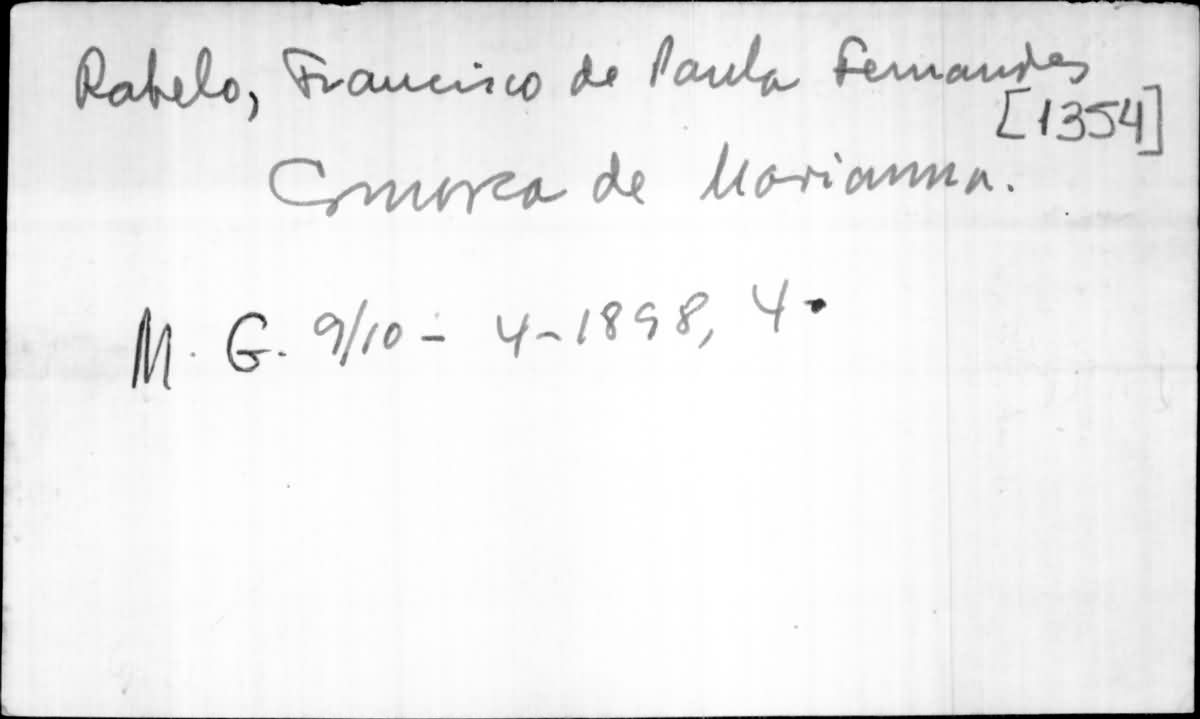 Rabelo, Francisco de Paula Fernandes
[1354]
Comarca de Marianna.
M. G. 9/10 - 4-1898, 4.